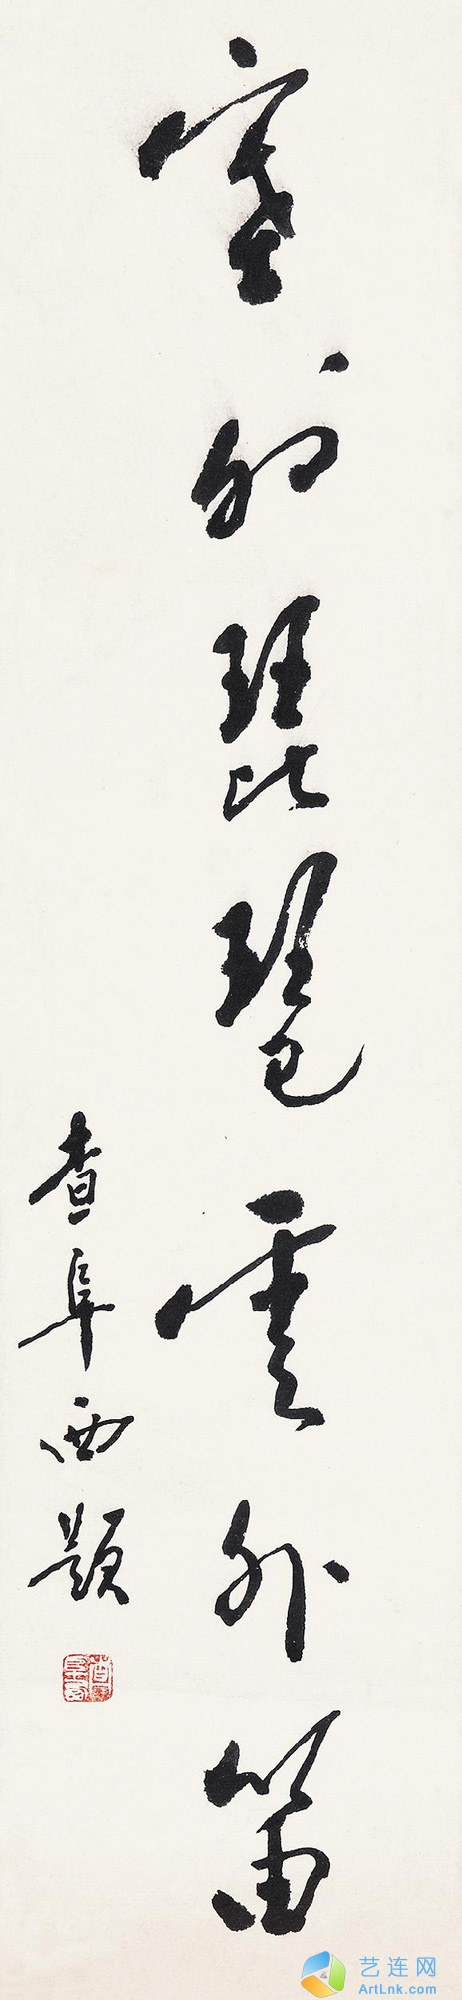 塞外琵琶雲外笛
查阜西題
艺连网
ArtLnk.com